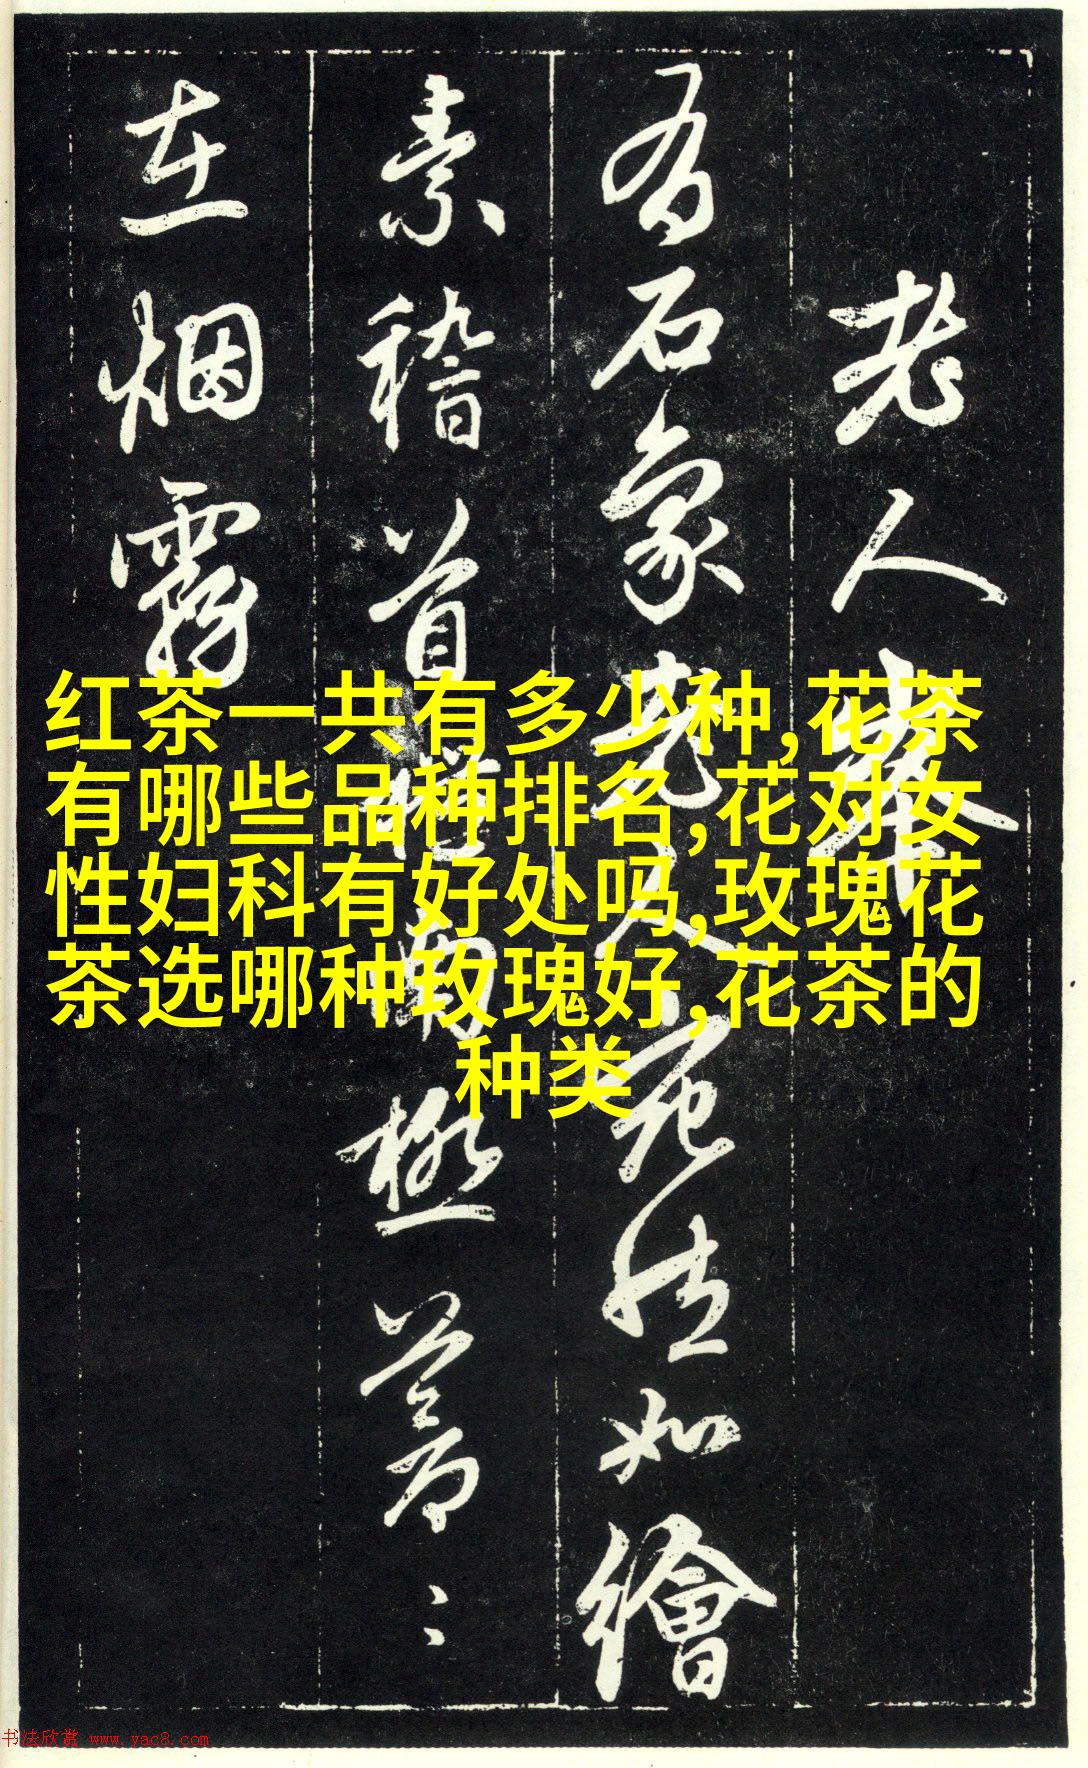 老人峯
有石象老人宛然如繪
素稽首懽南極蒼蒼
在烟霧
红茶一共有多少种,花茶
有哪些品种排名,花对女
性妇科有好处吗,玫瑰花
茶选哪种玫瑰好,花茶的
种类
书法欣赏 www.yac8.com